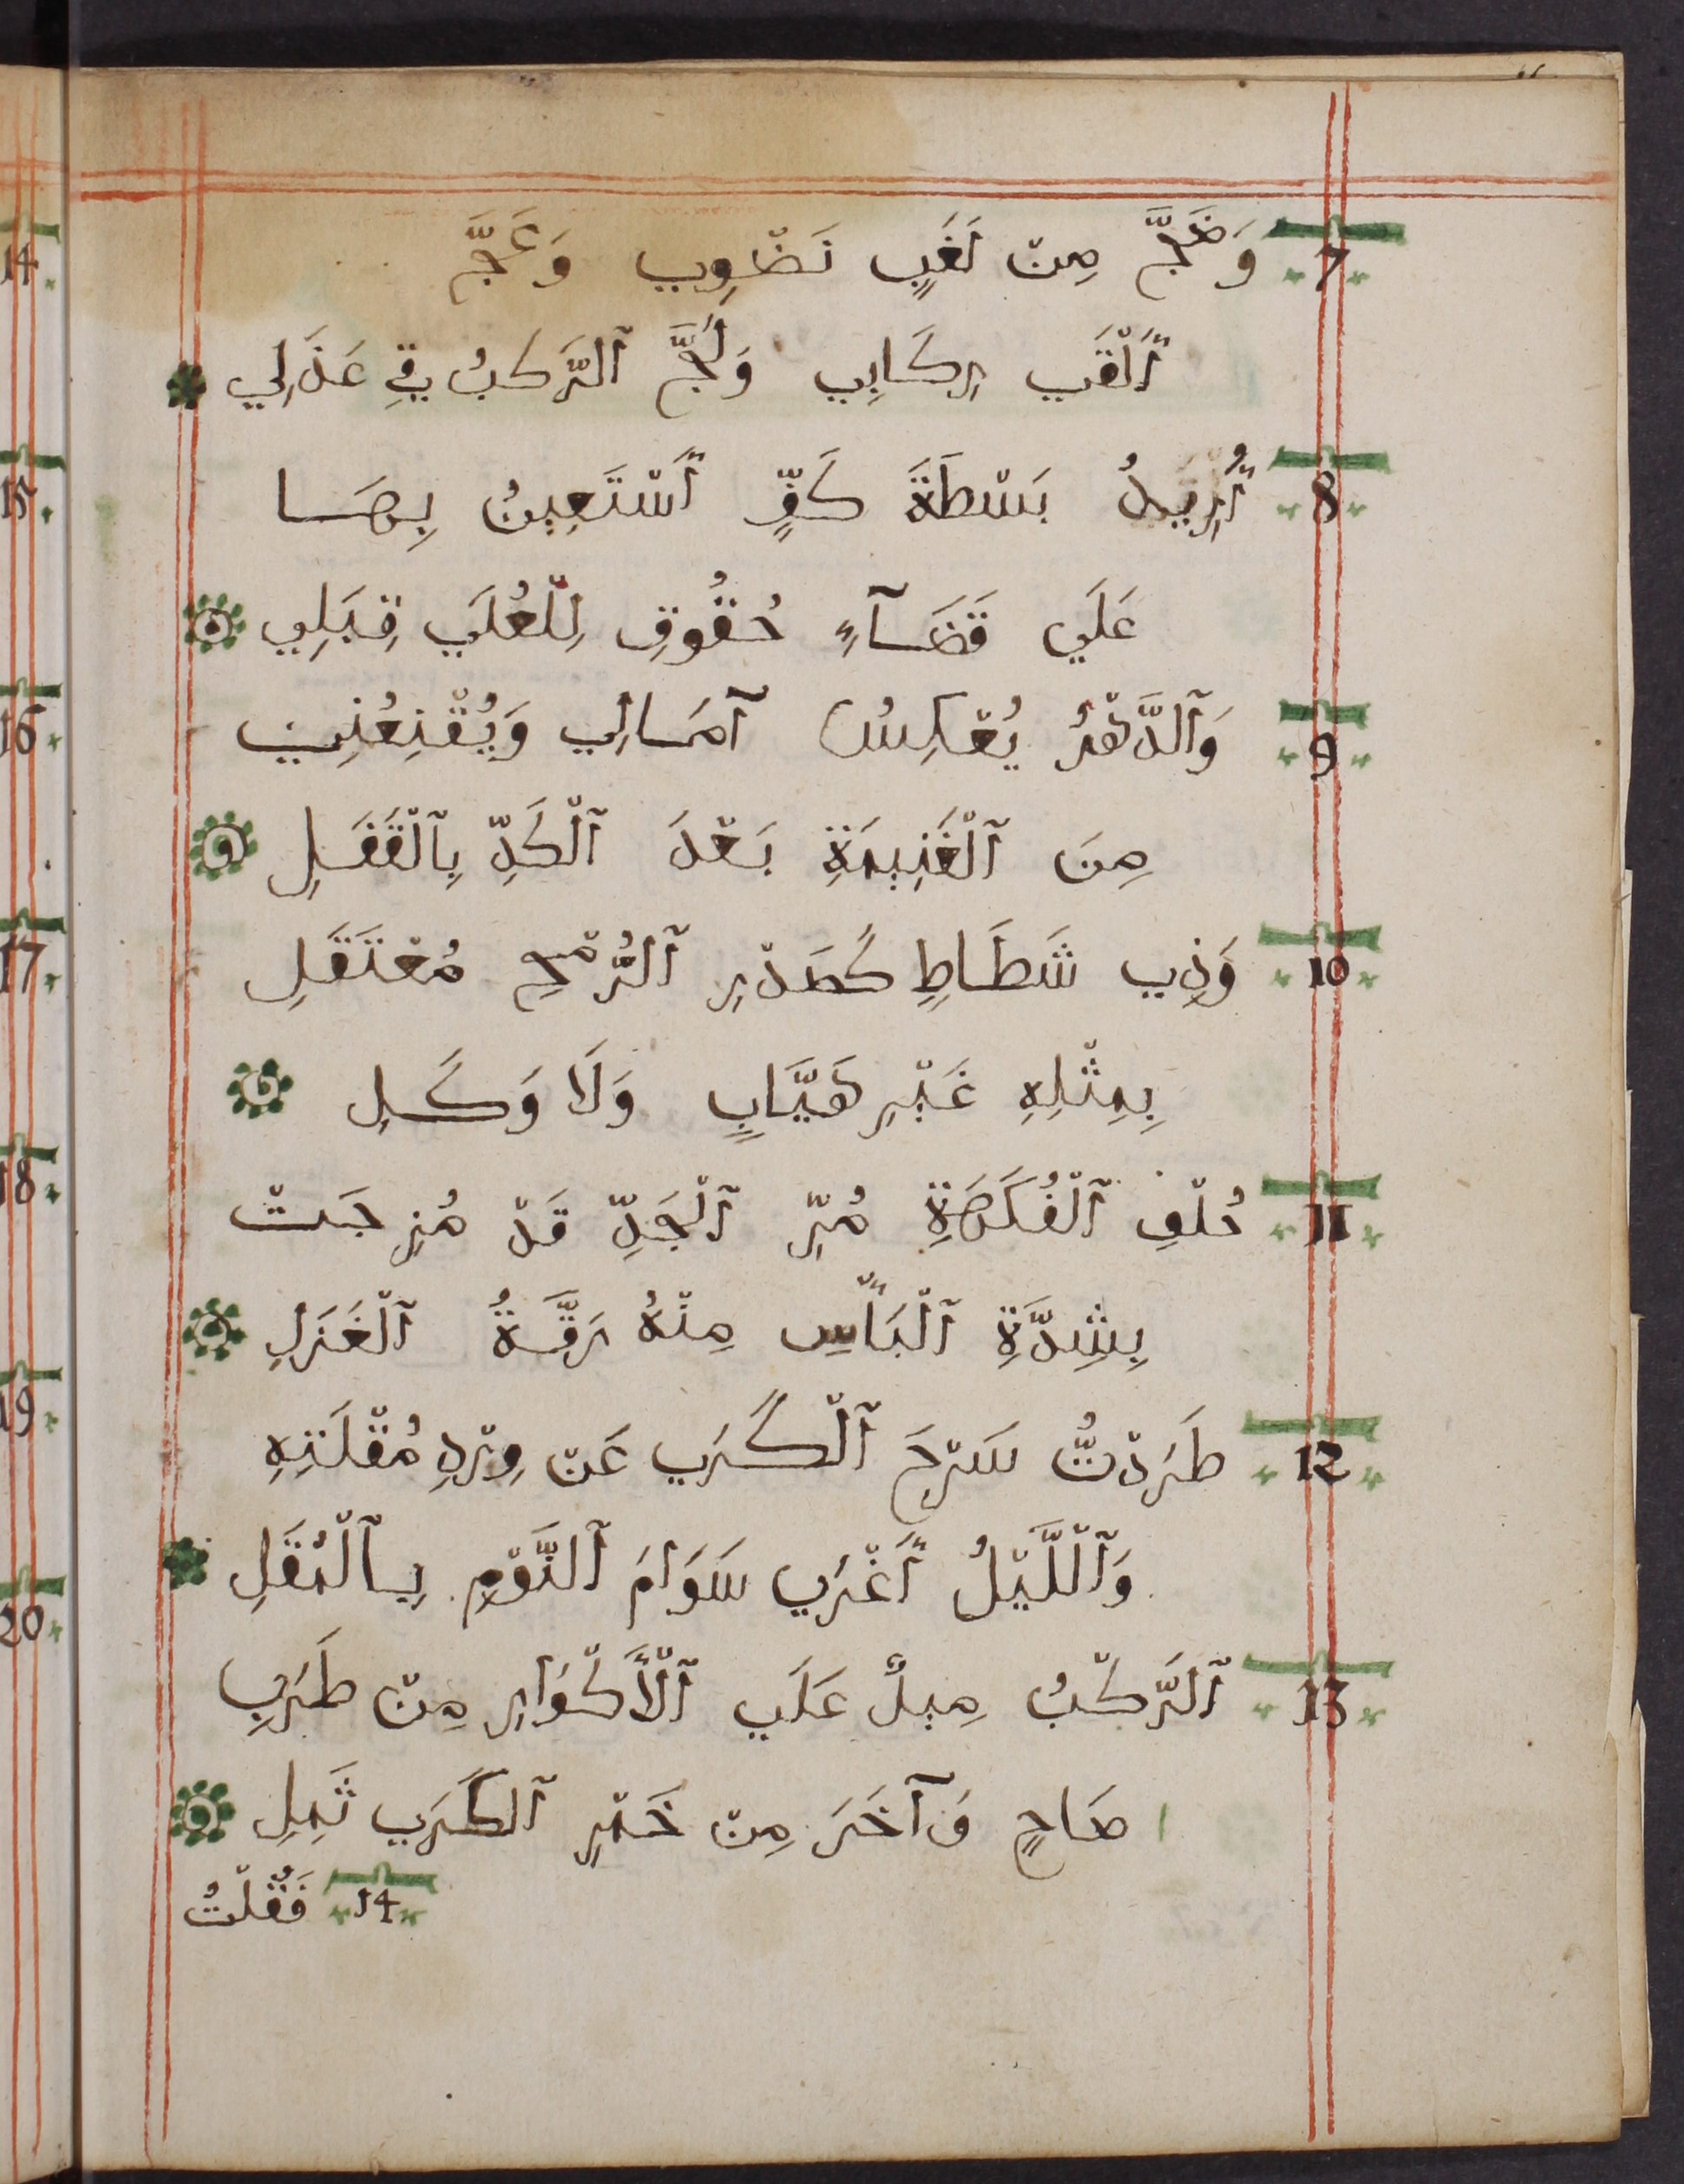 7 وَضَجَّ مِنْ لَغَبٍ نَضْوِي وَعَجَّ
أَلْقَي رِكَابِي وَلَجَّ ٱلرَّكبُ فِي عَذَلِي
8 أُرِيدُ بَسْطَةَ كَفٍّ أَسْتَعِينُ بِهَا
عَلَي قَضَآءِ حُقُوقٍ لِلْعُلَي قِبَلِي
9 وَٱلدَّهْرُ يُعْكِسُ آمَالِي وَيُقْنِعُنِي
مِنَ ٱلْغَنِيمَةِ بَعْدَ ٱلْكَدِّ بِٱلْقَفَلِ
10 وَذِي شَطَاطٍ كَصَدْرِ ٱلرُّمْحِ مُعْتَقَلٍ
بِمِثْلِهِ غَيْرِ هَيَّابٍ وَلَا وَكَلِ
11 حُلْوِ ٱلْفُكَاهَةِ مُرِّ ٱلْجَدِّ قَدْ مُزِجَتْ
بِشِدَّةِ ٱلْبَأْسِ مِنْهُ رَقَّةُ ٱلْغَزَلِ
12 طَرَدْتُّ سَرْحَ ٱلْكَرَي عَنْ وِرْدِ مُقْلَتِهِ
وَٱلْلَّيْلُ أَغْرَي سَوَامَ ٱلنَّوْمِ بِٱلْمُقَلِ
13 ٱلرَّكْبُ مِيلٌ عَلَي ٱلْأَكْوَارِ مِنْ طَرَبٍ
صَاحٍ وَآخَرَ مِنْ خَمْرِ ٱلكَرَي ثَمِلِ
14 فَقُلْتُ
14
15
16
17
18
19
20